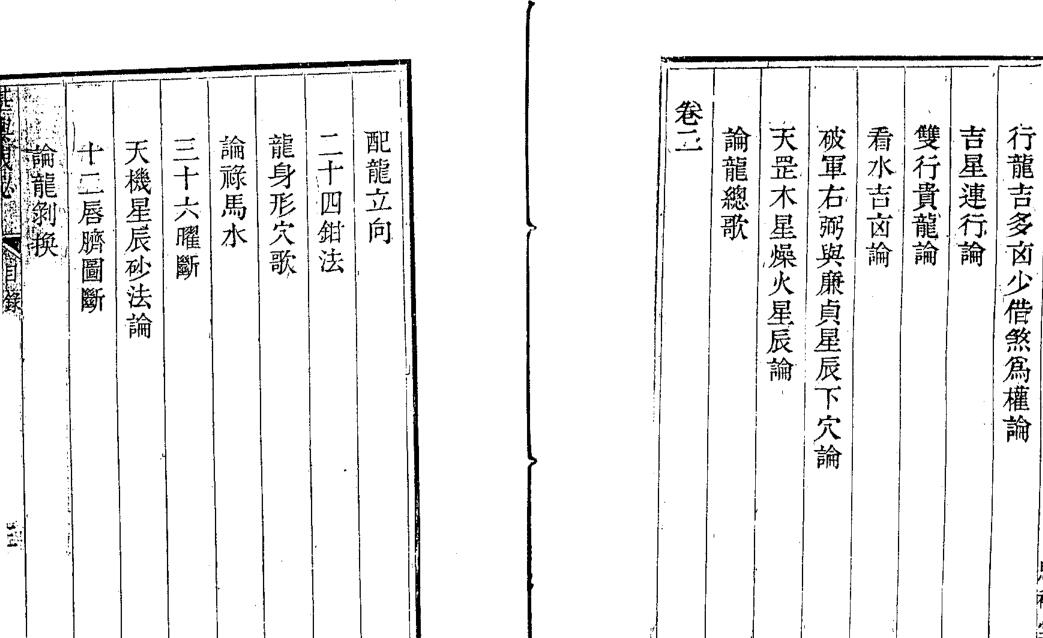 行龍吉多凶少借煞爲權論
吉星連行論
雙行貴龍論
看水吉凶論
破軍右弼與廉貞星辰下穴論
天罡木星燥火星辰論
論龍總歌
卷二
配龍立向
二十四鉗法
龍身形穴歌
論祿馬水
三十六曜斷
天機星辰砂法論
十二唇臍圖斷
論龍剝換
目錄